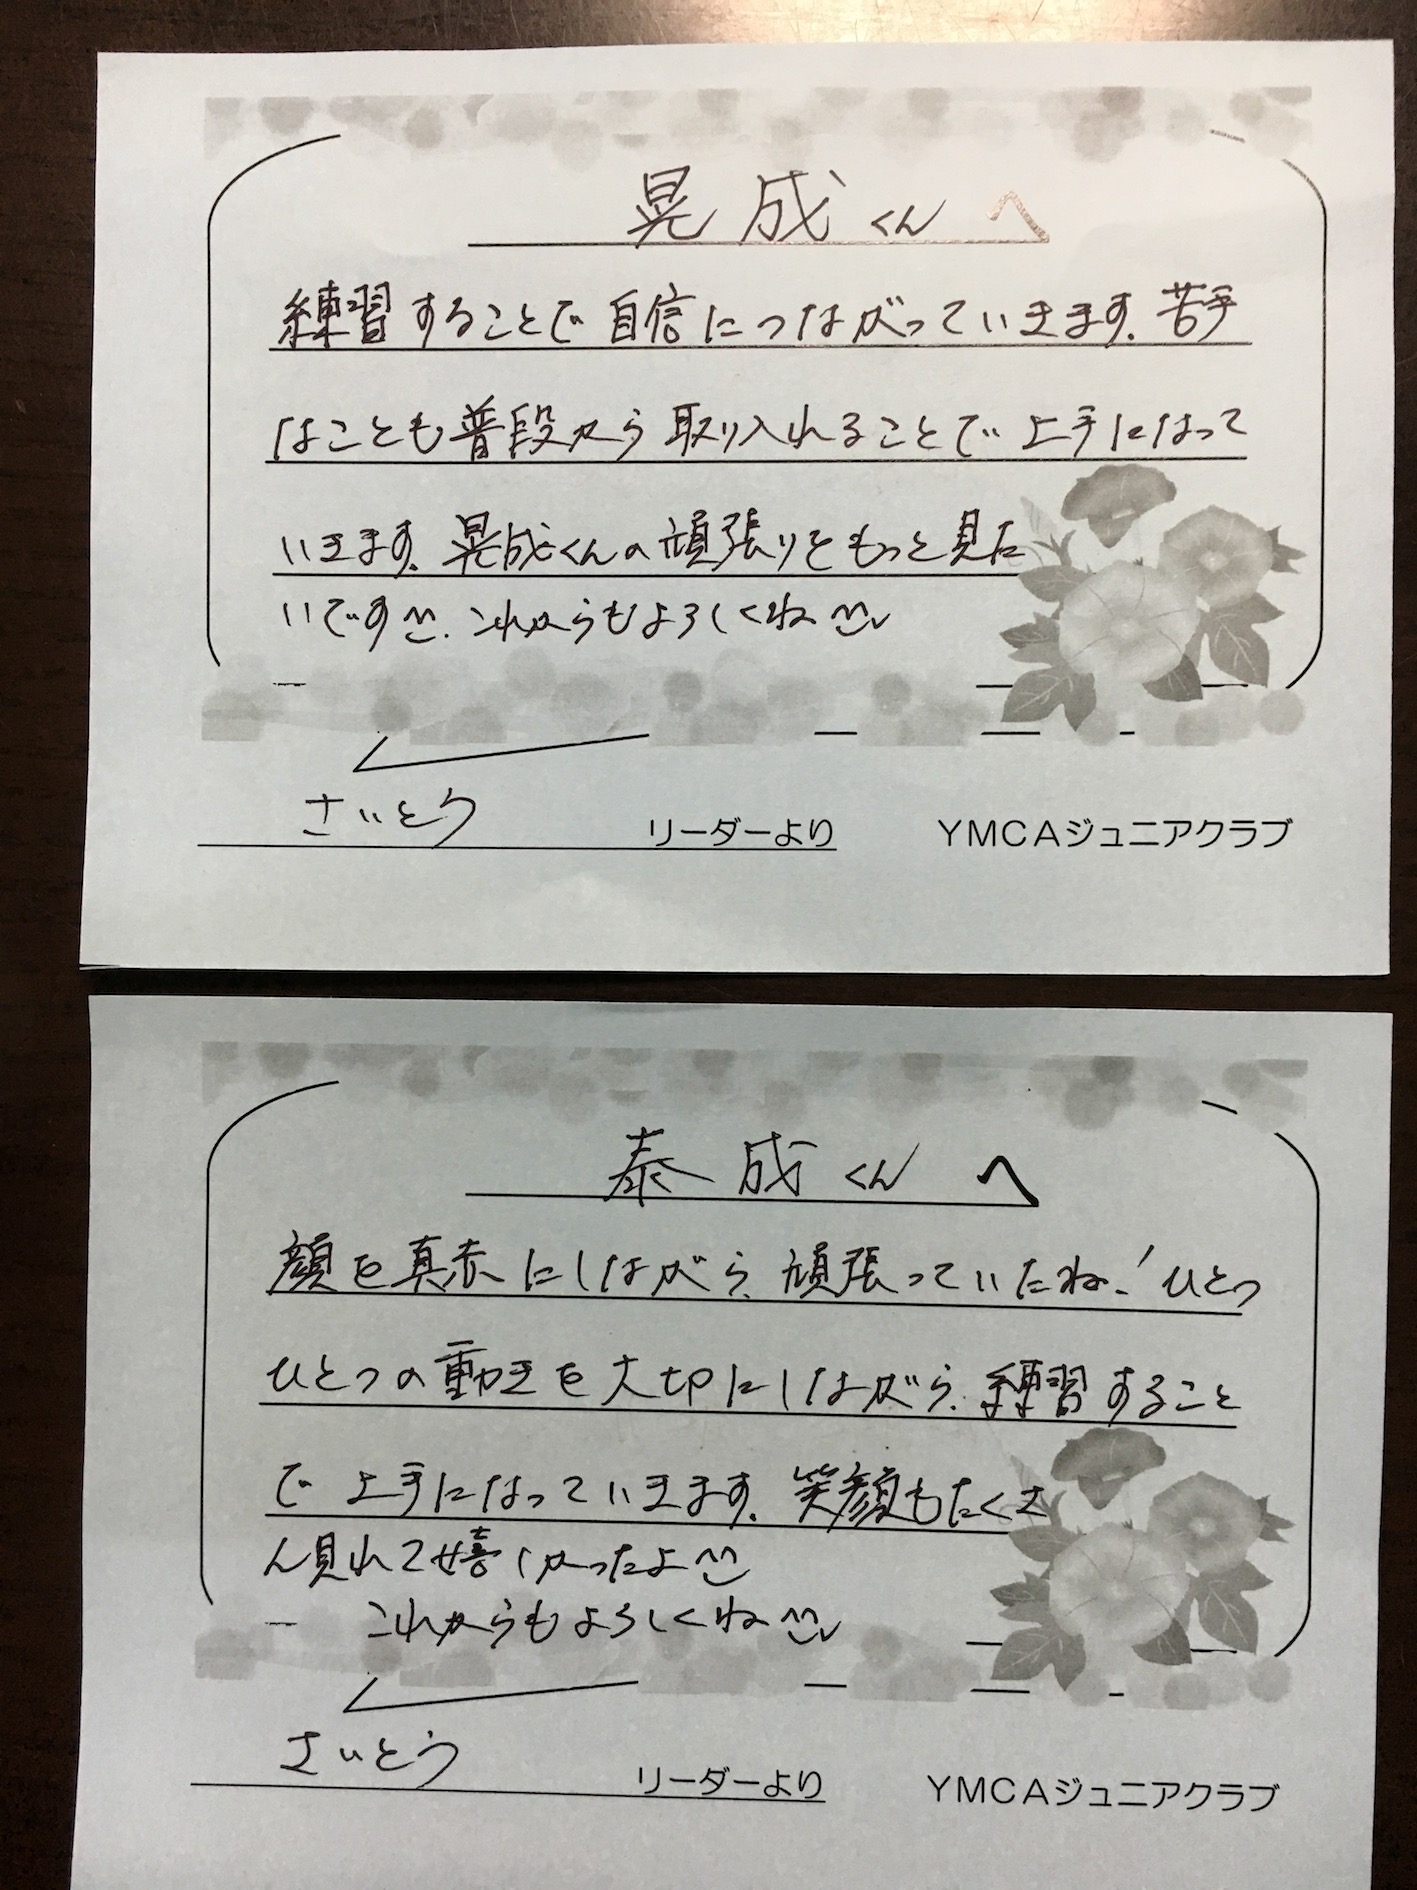 晃成くんへ
練習することで自信につながっていきます。苦手
なことも普段から取り入れることで上手になって
いきます。晃成くんの頑張りをもっと見た
いです^^。これからもよろしくね^^
さいとう リーダーより YMCAジュニアクラブ
泰成くんへ
顔を真赤にしながら、頑張っていたね！ひとつ
ひとつの動きを大切にしながら、練習すること
で上手になっていきます。笑顔もたくさ
ん見れて嬉しかったよ^^
これからもよろしくね^^
さいとう リーダーより YMCAジュニアクラブ